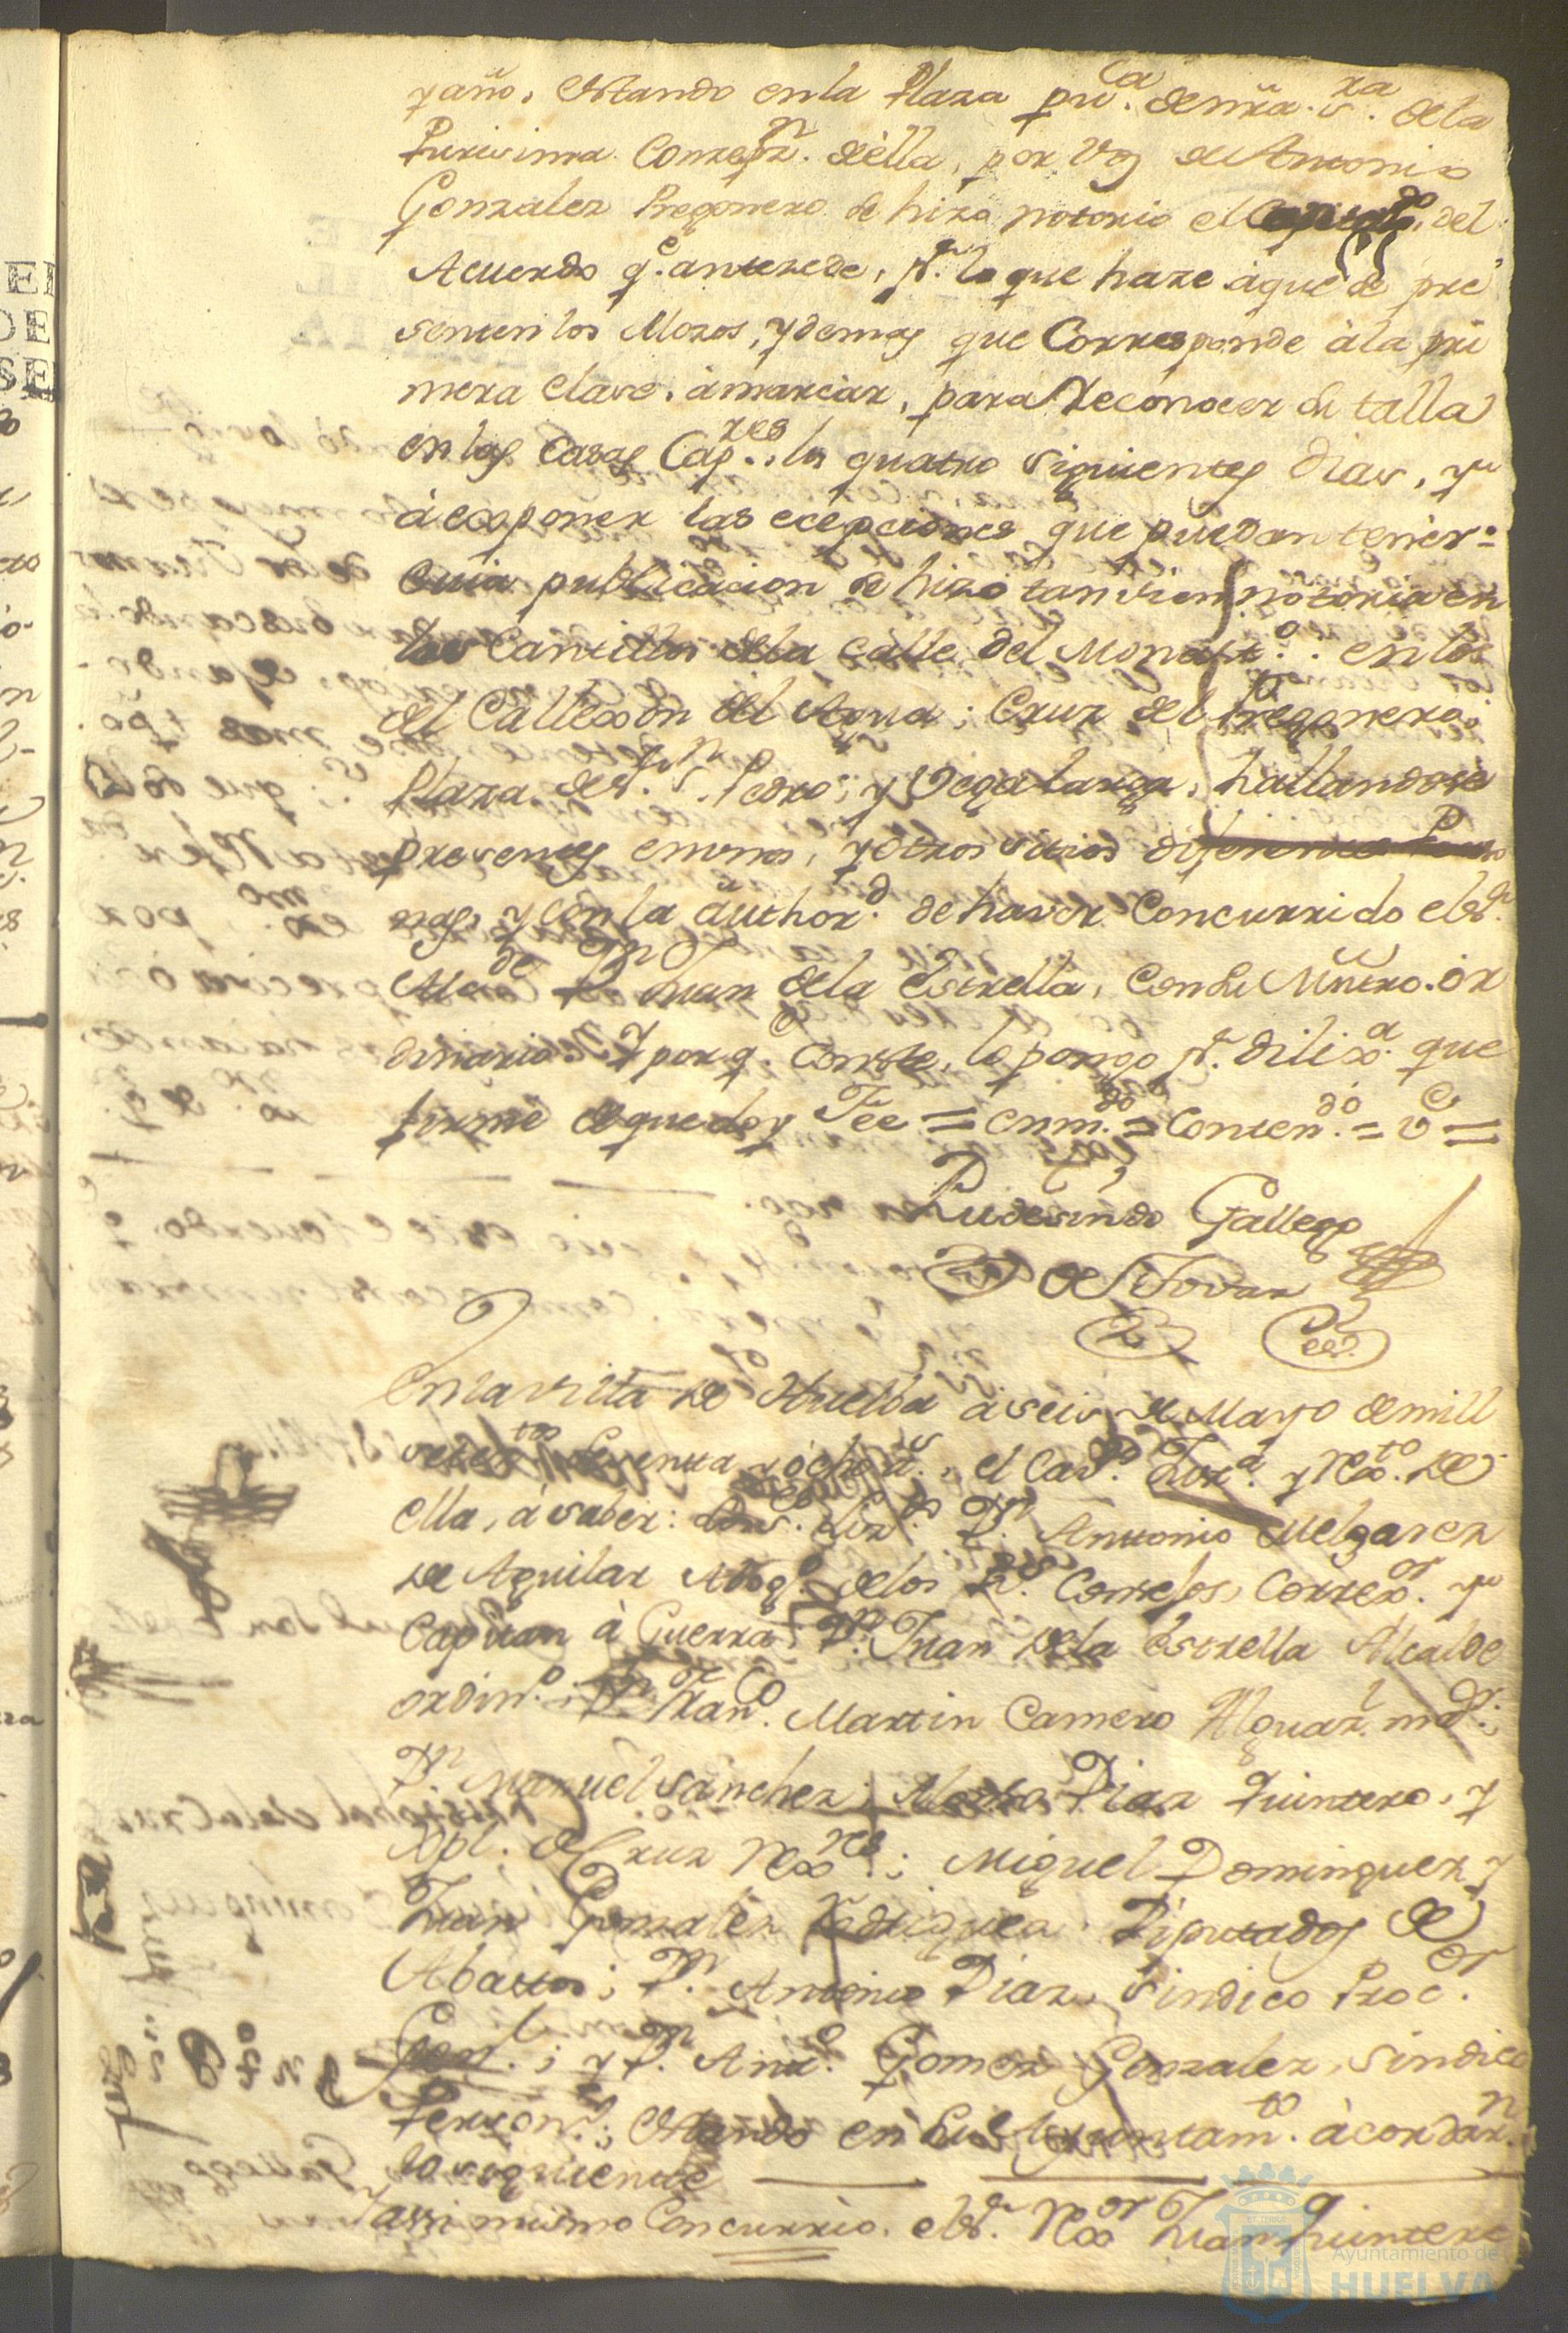 y año, estando en la Plaza pu.ca de nrâ. S.ra de la
Purisima Conzepz.n de èlla, por voz de Antonio
Gonzalez Pregonero se hizo notorio el del
Acuerdo q.e antezede, p.r lo que haze à que se pre
senten los Mozos, y demas que Corresponde à la pri
mera Clase, à marcar, para Reconozer su talla
en las Casas Cap.res, los quatro siguientes dias, y
à exsponer las ecepciones que puedan tener=
Cuia publicacion se hizo tanvien notoria en
los Cantillos de la Calle del Monast.o: en los
del Callexon del Agua; Cruz del Pregonero;
Plaza de S.r S.n Pedro; y Vega larga, hallandose
presentes en unos, y otros sitios diferentes Perso
nas, y con la àuthor.d de haver Concurrido el S.r
Alc.de D.n Juan de la Estrella, con su Mñtro. òr
dinario. Y por q.e Conste, lo pongo p.r dilix.a que
firmè de que doy Feè = enm.do = Conten.do = v.e =
Rudesindo Gallego
de Tovar
Ess.o
En la villa de Huelba à seis de Mayo de mill
setez.tos setenta y òcho a.s, el Cav.do Just.a y Rex.to de
ella, à saber: los S.res Liz.do D.n Antonio Melgarez
de Aguilar Abog.o de los R.s Consejos, Correx.or y
Capitan à Guerra; D.n Juan de la Estrella Alcalde
ordin.o; D.n Fran.co Martin Camero Alguaz.l ma.or;
D.n Manuel Sanchez; Alonso Diaz Quintero, y
Xpl. de Cruz Rex.res; Miguel Dominguez y
Juan Gonzalez Rodriguez Diputados de
Abastos; D.n Antonio Diaz, Sindico Proc.or
Gen.l; y D.n Ant.o Gomez Gonzalez, Sindico
Person.o; estando en su Ayuntam.to àcordar.n
lo siguiente
Y assi mismo Concurriò el S.r Rex.or Juan Quintero
Ayuntamiento de
HUELVA